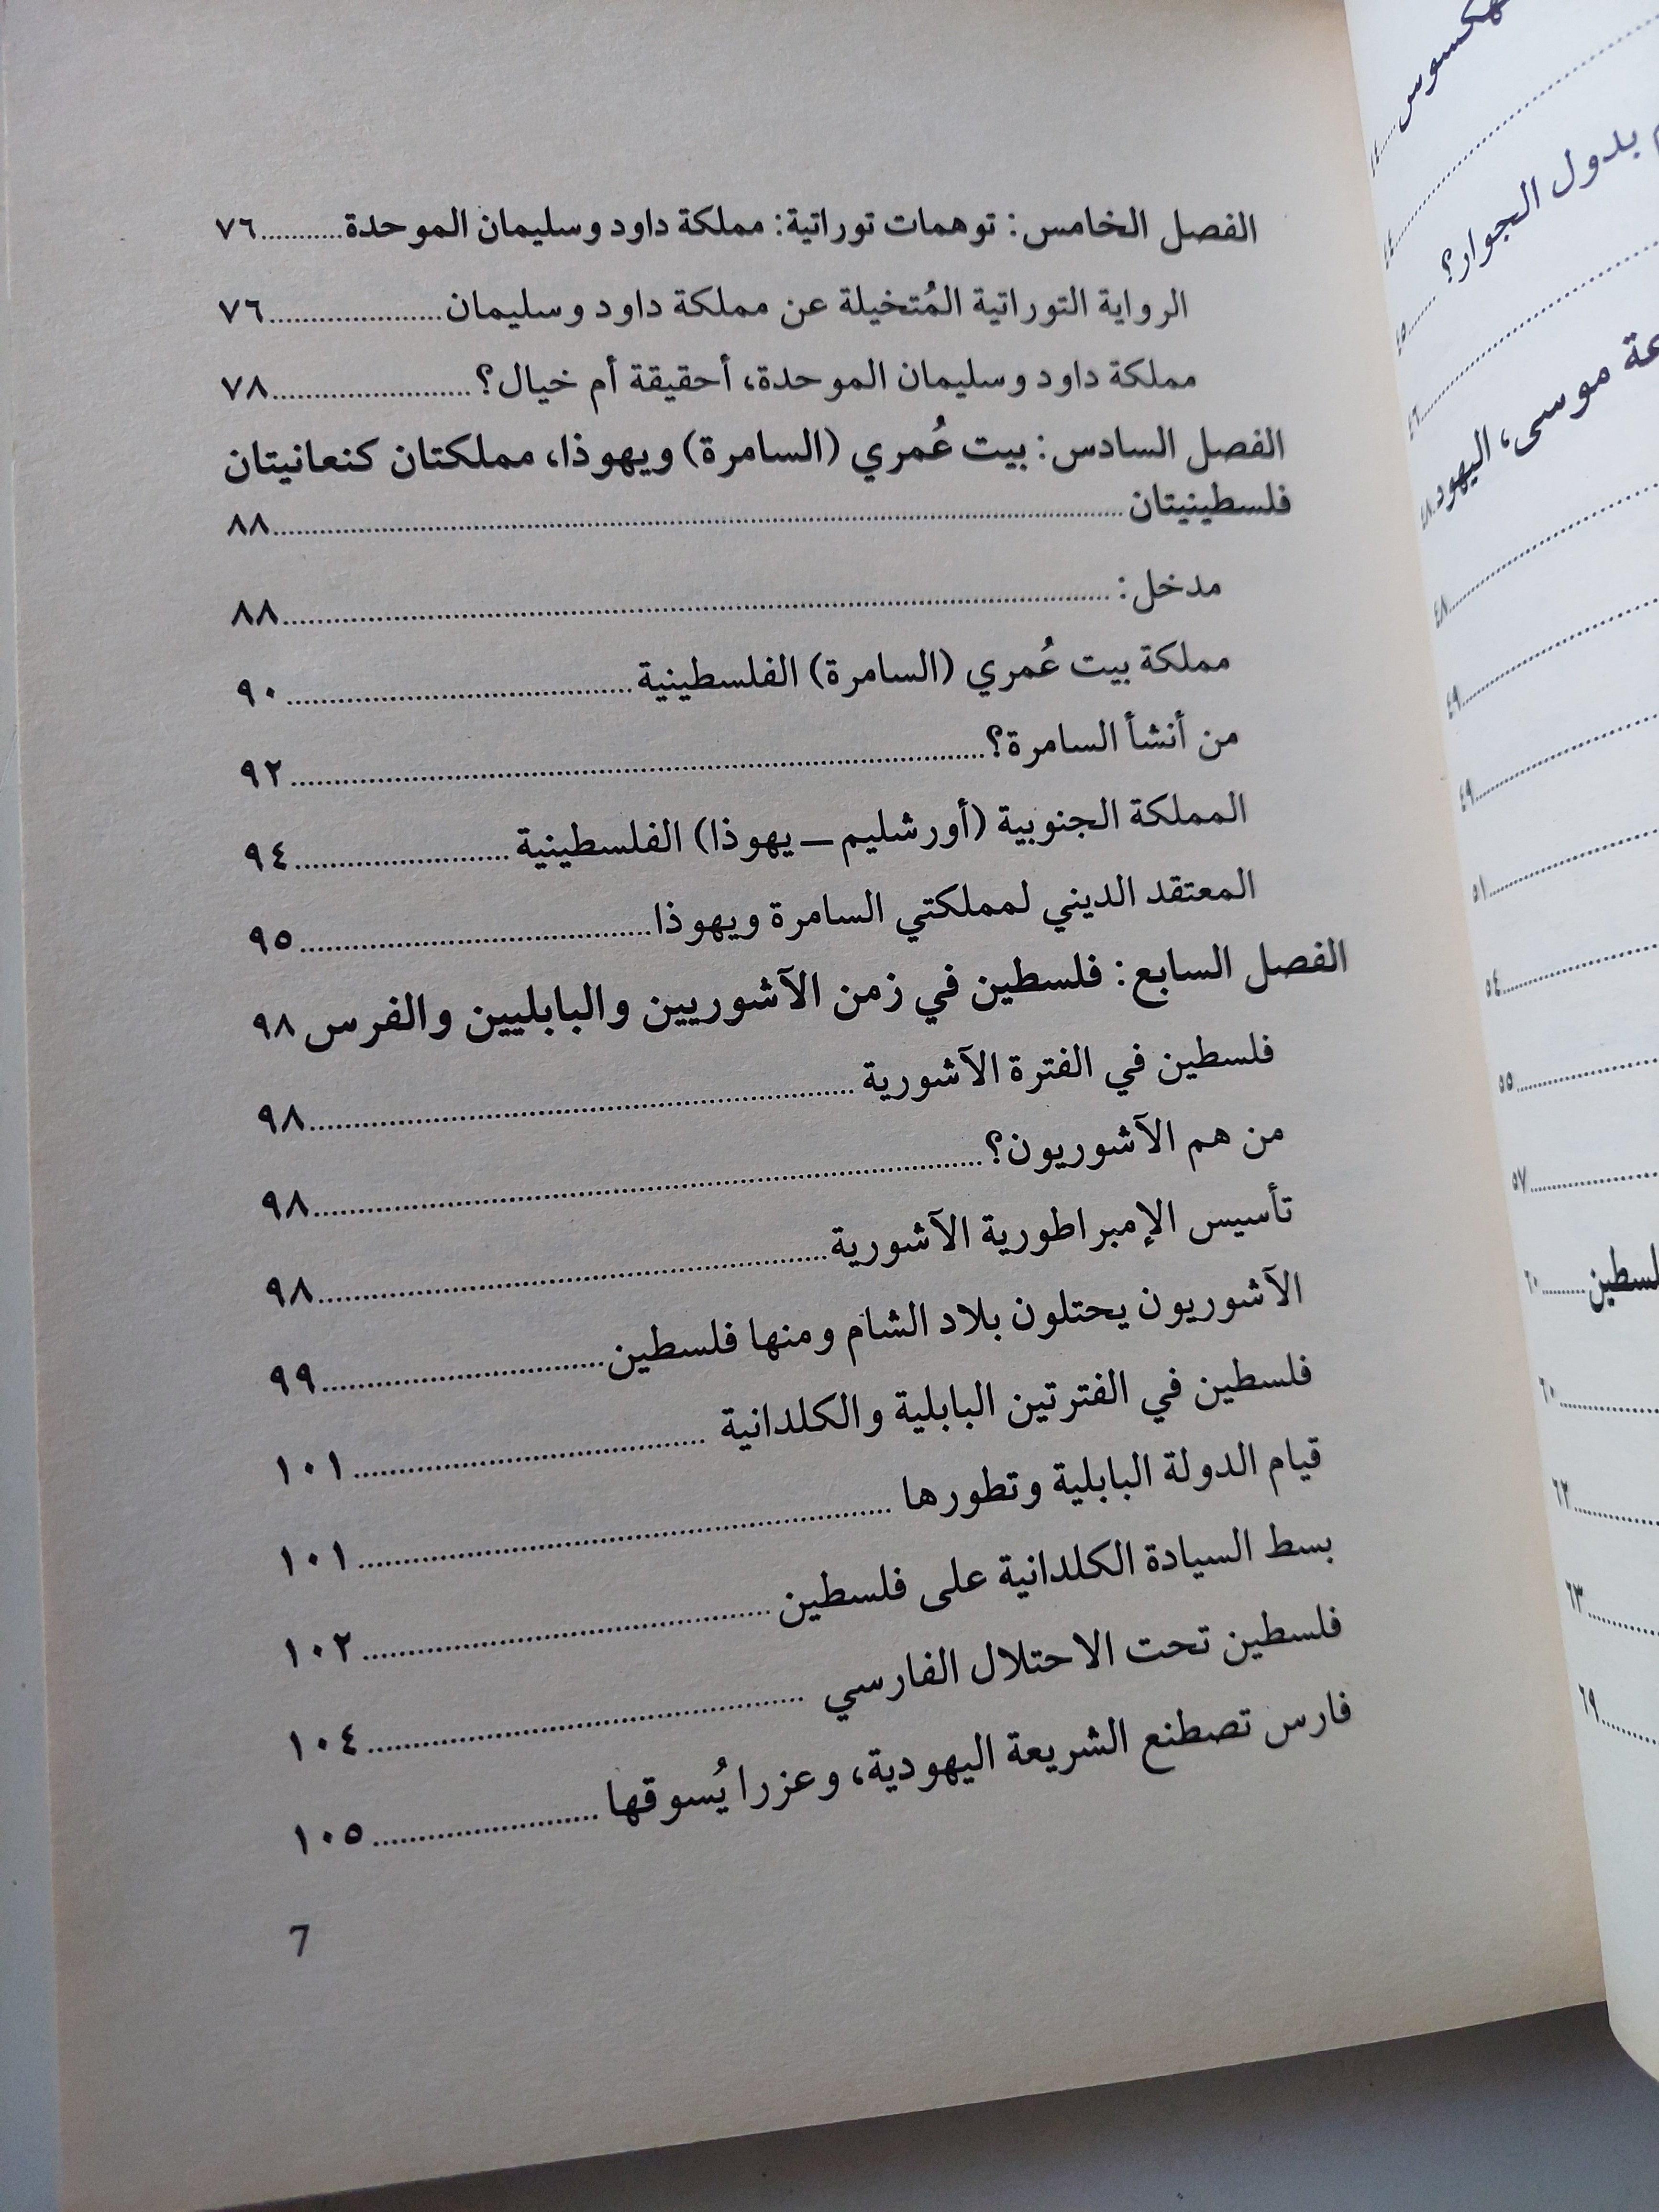 الفصل الخامس: توهمات توراتية: مملكة داود وسليمان الموحدة...........٧٦
الرواية التوراتية المُتخيلة عن مملكة داود وسليمان.....................٧٦
مملكة داود وسليمان الموحدة، أحقيقة أم خيال؟........................٧٨
الفصل السادس: بيت عُمري (السامرة) ويهوذا، مملكتان كنعانيتان
فلسطينيتان................................................................٨٨
مدخل:................................................................٨٨
مملكة بيت عُمري (السامرة) الفلسطينية........................................٩٠
من أنشأ السامرة؟................................................................٩٢
المملكة الجنوبية (أورشليم ــ يهوذا) الفلسطينية..........................٩٤
المعتقد الديني لمملكتي السامرة ويهوذا........................................٩٥
الفصل السابع: فلسطين في زمن الآشوريين والبابليين والفرس ٩٨
فلسطين في الفترة الآشورية................................................................٩٨
من هم الآشوريون؟................................................................٩٨
تأسيس الإمبراطورية الآشورية............................................................٩٨
الآشوريون يحتلون بلاد الشام ومنها فلسطين..................................٩٩
فلسطين في الفترتين البابلية والكلدانية ..........................................١٠١
قيام الدولة البابلية وتطورها ................................................................١٠١
بسط السيادة الكلدانية على فلسطين................................................١٠٢
فلسطين تحت الاحتلال الفارسي ....................................................١٠٤
فارس تصطنع الشريعة اليهودية، وعزرا يُسوقها ...........................١٠٥
7
بدول الجوار؟........٤٥
٤٦
موسى، اليهود.٤٨
٤٨
٤٩
٤٩
٥١
٥٤
٥٥
٥٧
٦٠
٦٠
٦٢
٦٣
٦٩